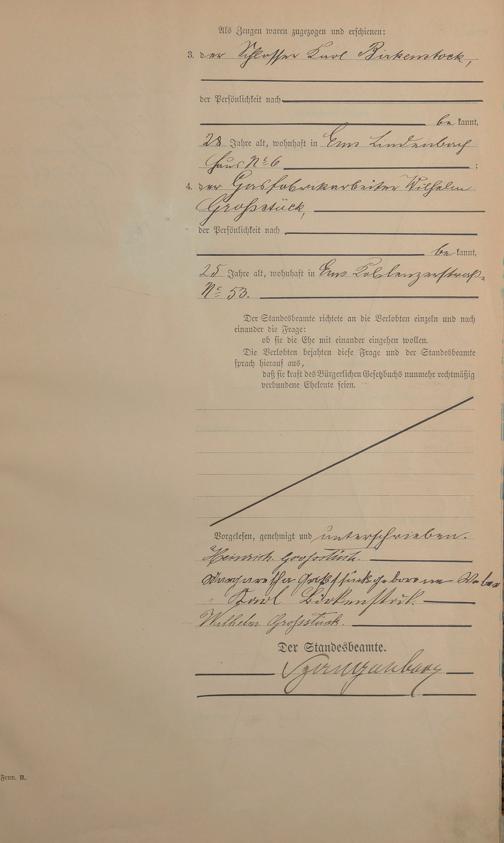 Als Zeugen waren zugezogen und erschienen:
3. der Schlosser Karl Birkenstock,
der Persönlichkeit nach
be kannt,
28 Jahre alt, wohnhaft in Ems Lindenbach
Haus No 6 ;
4. der Gasfabrikarbeiter Wilhelm
Großstück,
der Persönlichkeit nach
be kannt,
25 Jahre alt, wohnhaft in Ems Coblenzerstraße
No 53.
Der Standesbeamte richtete an die Verlobten einzeln und nach
einander die Frage:
ob sie die Ehe mit einander eingehen wollen.
Die Verlobten bejahten diese Frage und der Standesbeamte
sprach hierauf aus,
daß sie kraft des Bürgerlichen Gesetzbuchs nunmehr rechtmäßig
verbundene Eheleute seien.
Vorgelesen, genehmigt und unterschrieben.
Heinrich Großstück
Margaretha Großstück geborene
Karl Birkenstock
Wilhelm Großstück
Der Standesbeamte.
Form. B.